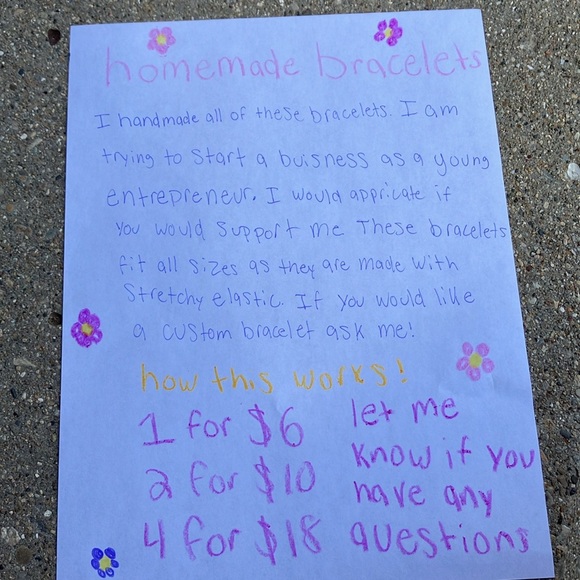 homemade bracelets
I handmade all of these bracelets. I am
trying to start a buisness as a young
entrepreneur. I would appricate if
you would support me These bracelets
fit all sizes as they are made with
stretchy elastic. If you would like
a custom bracelet ask me!
how this works!
1 for $6
2 for $10
4 for $18
let me
know if you
have any
questions